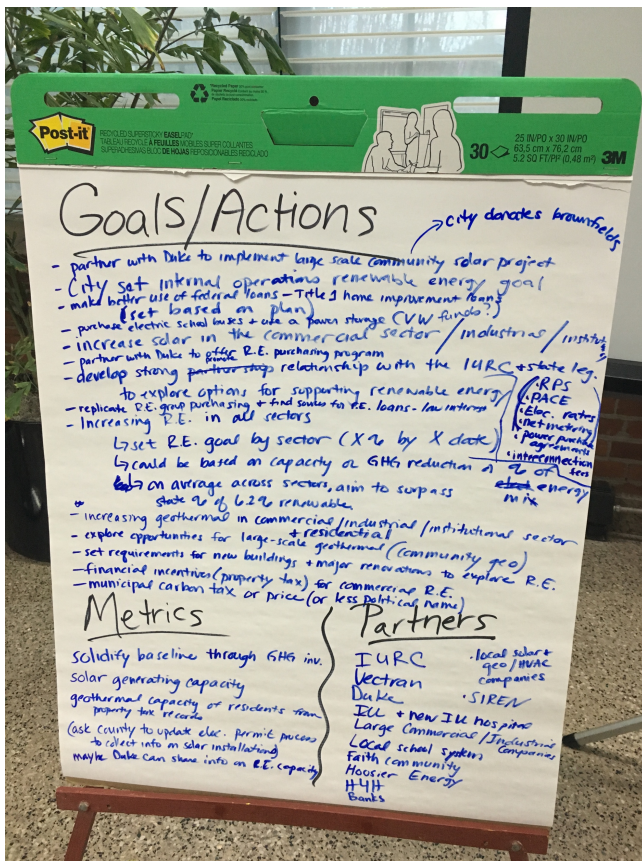 Post-it
RECYCLED SUPERSTICKY EASELPAD
TABLEAU RECYCLÉ À FEUILLES MOBILES SUPER COLLANTES
SUPERADHESIVAS BLOC DE HOJAS REPOSICIONABLES RECICLADO
30
25 IN/PO x 30 IN/PO
63,5 cm x 76,2 cm
5.2 SQ FT/PI² (0,48 m²)
3M
Goals/Actions
city donates brownfields
- partner with Duke to implement large scale community solar project
- City set internal operations renewable energy goal
(set based on plan)
- make better use of federal loans - Title 1 home improvement loans
- purchase electric school buses + use a power storage (VW funds?)
- increase solar in the commercial sector / industrias / institut
- partner with Duke to offer R.E. purchasing program
- develop strong partnership relationship with the IURC + state leg.
to explore options for supporting renewable energy
• RPS
• PACE
• Elec. rates
• net metering
• power purchase agreements
• interconnection fees
- replicate R.E. group purchasing + find source for R.E. loans - low interest
- Increasing R.E. in all sectors
↳ set R.E. goal by sector (X% by X date)
↳ could be based on capacity or GHG reduction or % of energy mix
↳ on average across sectors, aim to surpass
state % of 6.2% renewable
- increasing geothermal in commercial/industrial/institutional sector
+ residential
- explore opportunities for large-scale geothermal (community geo)
- set requirements for new buildings + major renovations to explore R.E.
- financial incentives (property tax) for commercial R.E.
- municipal carbon tax or price (or less political name)
Metrics
solidify baseline through GHG inv.
solar generating capacity
geothermal capacity of residents from
property tax records
(ask county to update elec. permit process
to collect info on solar installation)
maybe Duke can share info on R.E. capacity
Partners
IURC
Vectran
Duke
IU + new IU hospital
Large Commercial/Industrial Companies
Local school systems
Faith community
Hoosier Energy
H4H
Banks
• local solar +
geo/HVAC
companies
• SIREN